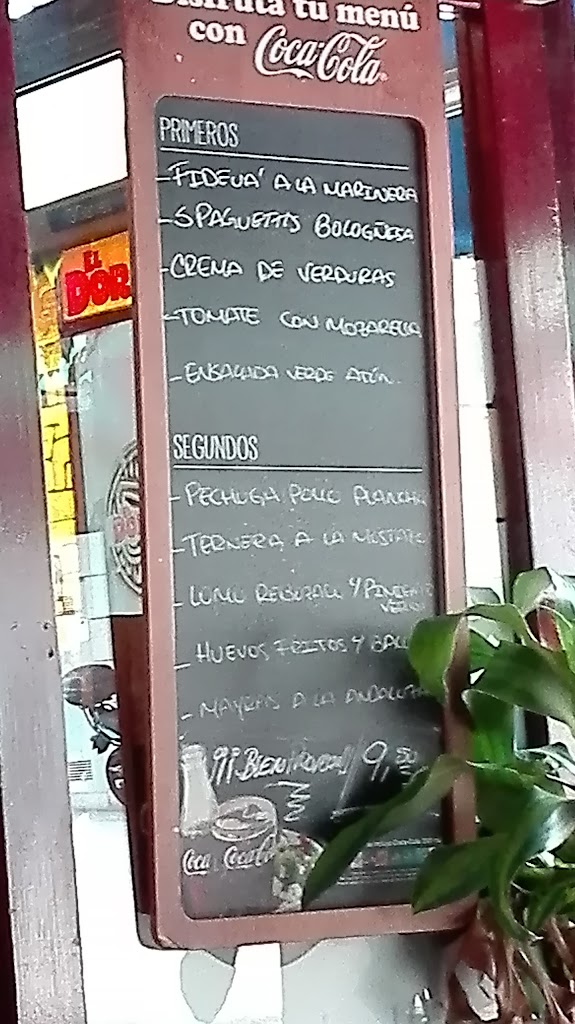 Disfruta tu menú
con Coca-Cola
PRIMEROS
- FIDEUA' A LA MARINERA
- SPAGUETTIS BOLOGÑESA
- CREMA DE VERDURAS
- TOMATE CON MOZARELLA
- ENSALADA VERDE ATÚN
SEGUNDOS
- PECHUGA POLLO PLANCHA
- TERNERA A LA MOSTAZA
- LOMO REBOZADO Y PIMIENTO
VERDE
- HUEVOS FRITOS Y BACON
- A LA ANDALUZA
9,50
Coca Coca-Cola
EL
DOR